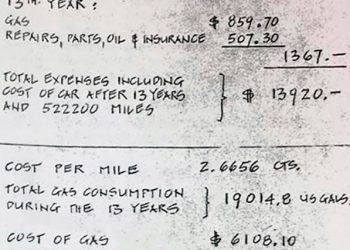 13TH YEAR:
GAS $ 859.70
REPAIRS, PARTS, OIL & INSURANCE 507.30
1367.—
TOTAL EXPENSES INCLUDING
COST OF CAR AFTER 13 YEARS } $ 13920.—
AND 522200 MILES
COST PER MILE 2.6656 CTS.
TOTAL GAS CONSUMPTION } 19014.8 US GALS.
DURING THE 13 YEARS
COST OF GAS $ 6108.10